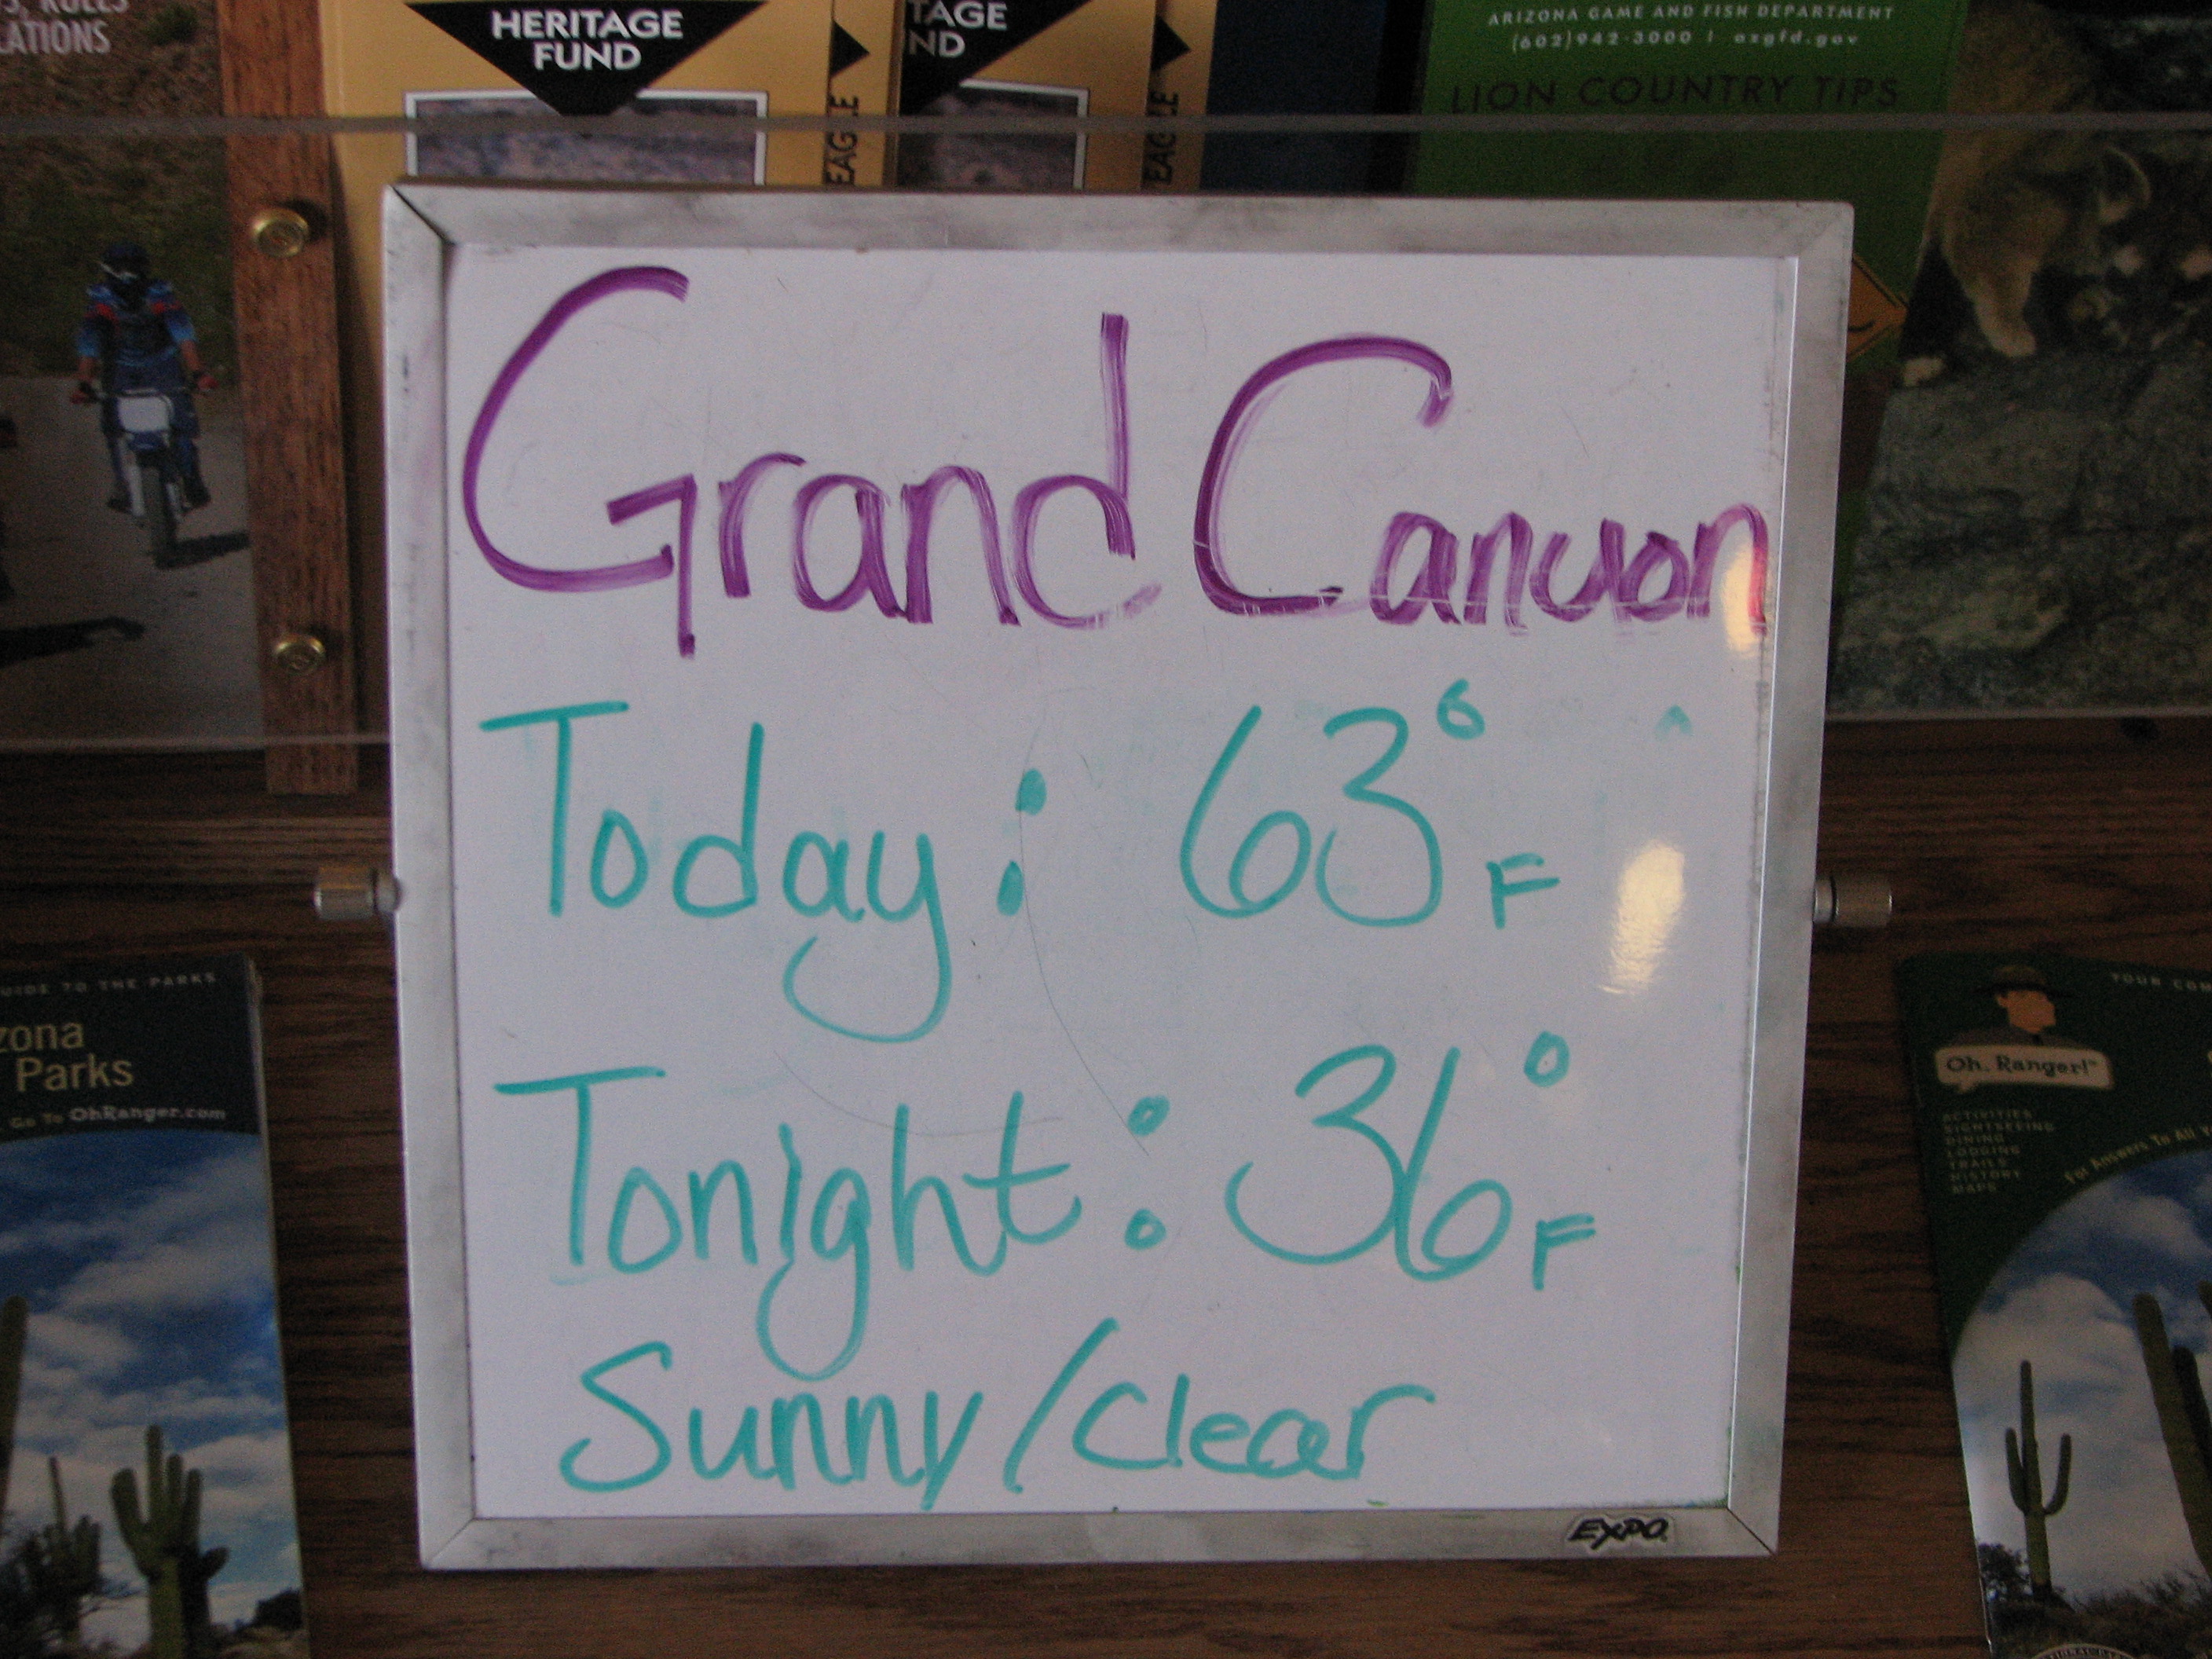 LATIONS
HERITAGE
FUND
EAGLE
TAGE
ND
EAGLE
ARIZONA GAME AND FISH DEPARTMENT
(602)942-3000 | azgfd.gov
LION COUNTRY TIPS
Grand Canyon
Today: 63° F
Tonight: 36° F
Sunny/clear
EXPO
GUIDE TO THE PARKS
zona
Parks
Go To OhRanger.com
YOUR COM
Oh, Ranger!
ACTIVITIES
SIGHTSEEING
DINING
LODGING
TRAILS
HISTORY
MAPS
For Answers To All Y